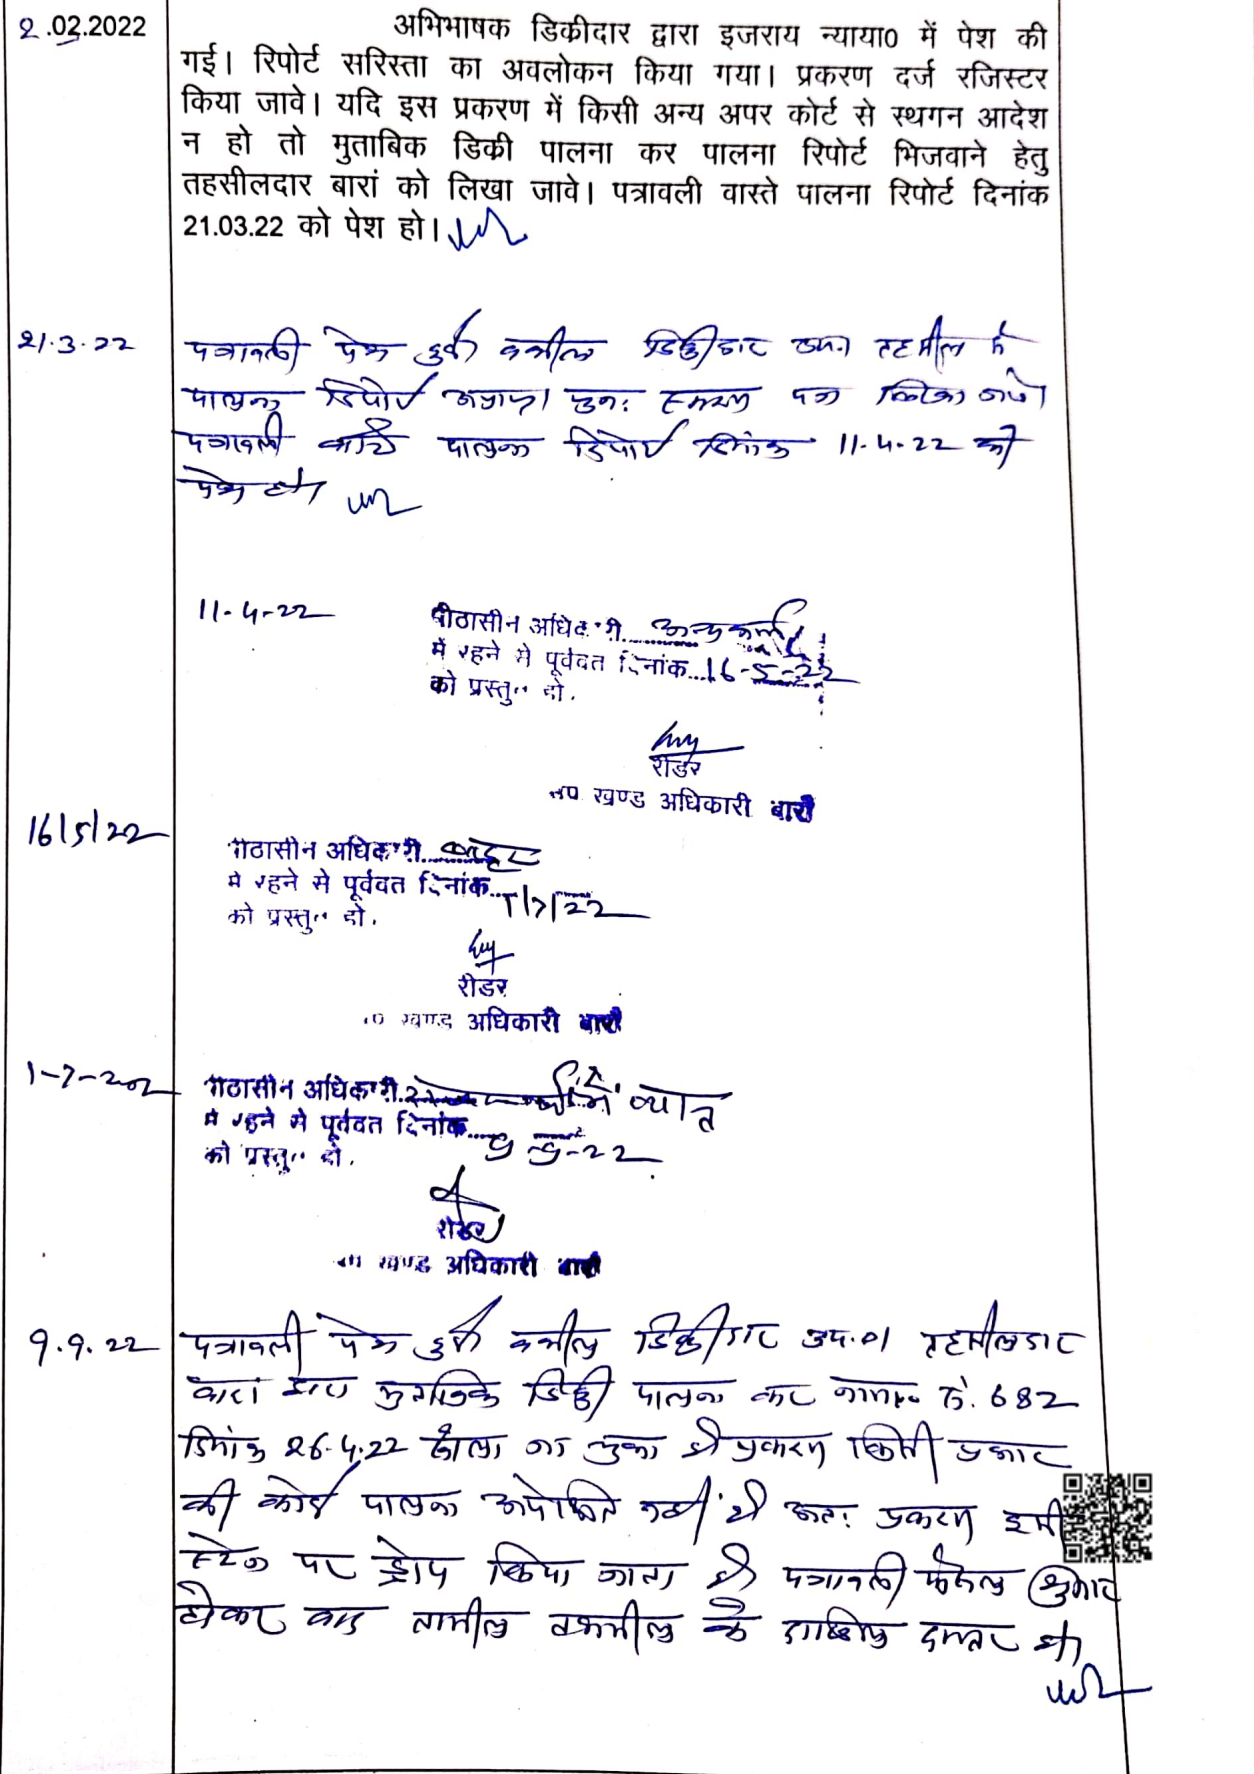 2.02.2022
अभिभाषक डिक्रीदार द्वारा इजराय न्याया0 में पेश की
गई। रिपोर्ट सरिस्ता का अवलोकन किया गया। प्रकरण दर्ज रजिस्टर
किया जावे। यदि इस प्रकरण में किसी अन्य अपर कोर्ट से स्थगन आदेश
न हो तो मुताबिक डिक्री पालना कर पालना रिपोर्ट भिजवाने हेतु
तहसीलदार बारां को लिखा जावे। पत्रावली वास्ते पालना रिपोर्ट दिनांक
21.03.22 को पेश हो।
21.3.22
पत्रावली पेश हुई वकील डिक्रीदार उप0 तहसील से
पालना रिपोर्ट अप्राप्त। पुनः स्मरण पत्र लिखा जावे।
पत्रावली वास्ते पालना रिपोर्ट दिनांक 11.4.22 को
पेश हो।
11-4-22
पीठासीन अधिकारी
में रहने से पूर्ववत दिनांक...16-5-22
को प्रस्तुत हो.
रीडर
उप खण्ड अधिकारी बारां
16/5/22
पीठासीन अधिकारी
में रहने से पूर्ववत दिनांक...1/7/22
को प्रस्तुत हो.
रीडर
उप खण्ड अधिकारी बारां
1-7-202
पीठासीन अधिकारी में व्यस्त
में रहने से पूर्ववत दिनांक...9-9-22
को प्रस्तुत हो.
रीडर
उप खण्ड अधिकारी बारां
9.9.22
पत्रावली पेश हुई वकील डिक्रीदार उप.0। तहसीलदार
बारां द्वारा मुताबिक डिक्री पालना कर नामा० सं. 682
दिनांक 26.4.22 खोला जा चुका है प्रकरण किसी प्रकार
की कोई पालना अपेक्षित नहीं है अतः प्रकरण इसी
स्टेज पर ड्रोप किया जाता है पत्रावली फैसल शुमार
होकर बाद तामील तकमील के दाखिल दफ्तर हो।